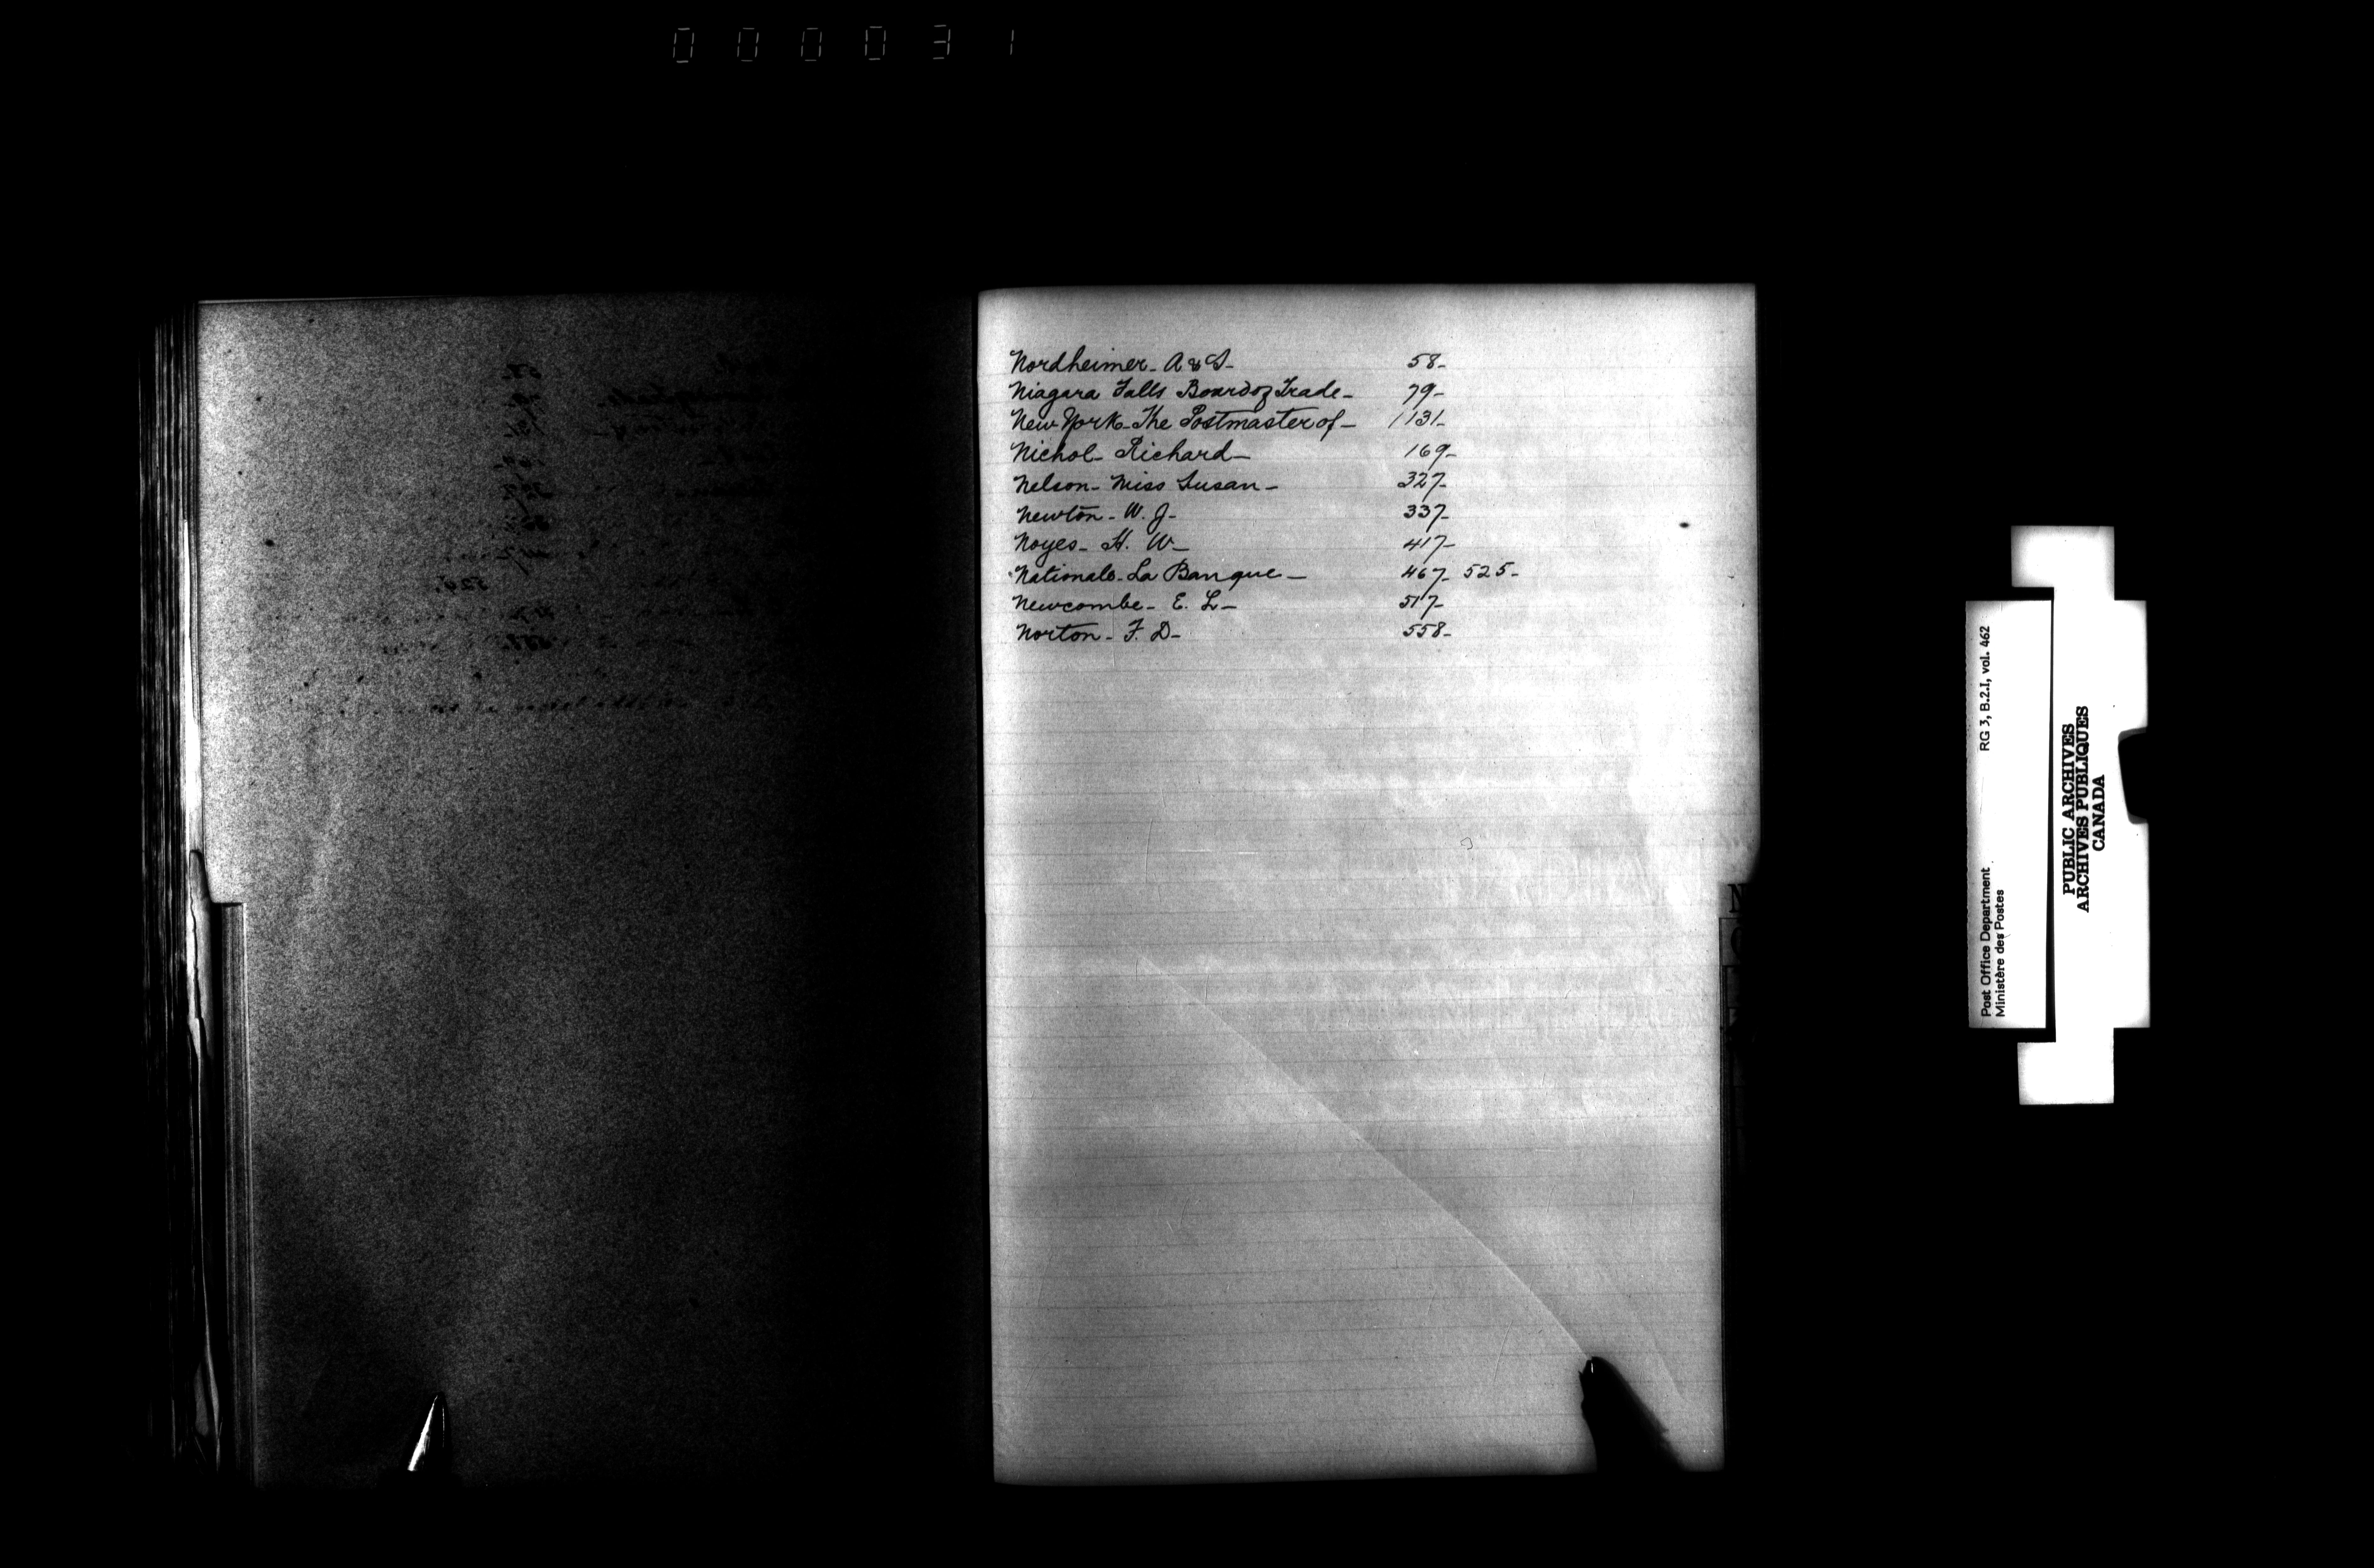 000031
Nordheimer - A & S - 58 -
Niagara Falls Board of Trade - 79 -
New York - The Postmaster of - 131 -
Nichol - Richard - 169 -
Nelson - Miss Susan - 327 -
Newton - W. J. - 337 -
Noyes - H. W - 417 -
Nationale - La Banque - 467 - 525 -
Newcombe - E. L - 517 -
Norton - F. D - 558 -
N
RG 3, B.2.I, vol. 462
Post Office Department
Ministère des Postes
PUBLIC ARCHIVES
ARCHIVES PUBLIQUES
CANADA